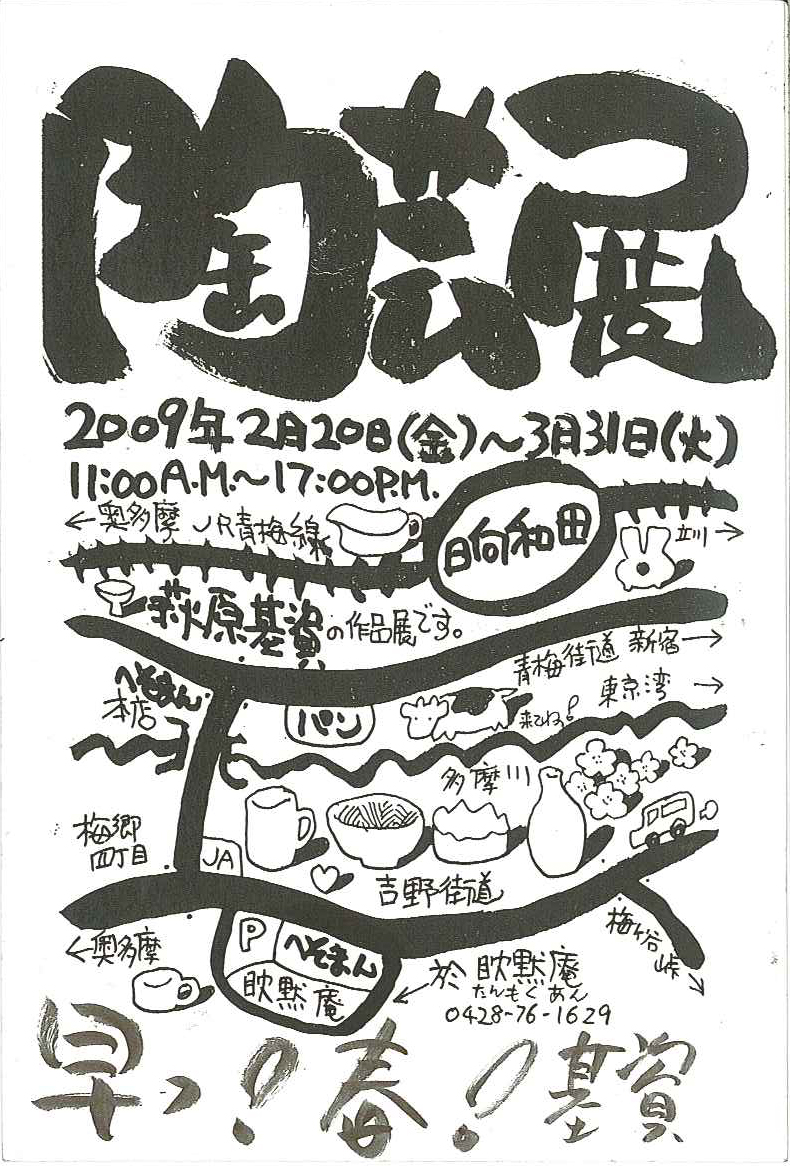 陶芸展
2009年2月20日(金)～3月31日(火)
11:00A.M.～17:00P.M.
←奥多摩 JR青梅線
日向和田
立川→
萩原基資の作品展です。
青梅街道 新宿→
へそまん
本店
パン
来てね!
東京湾→
多摩川
梅郷
四丁目
JA
吉野街道
梅ヶ谷峠
←奥多摩
P
へそまん
眈黙庵
於 眈黙庵
たんもくあん
0428-76-1629
早っ!春!基資